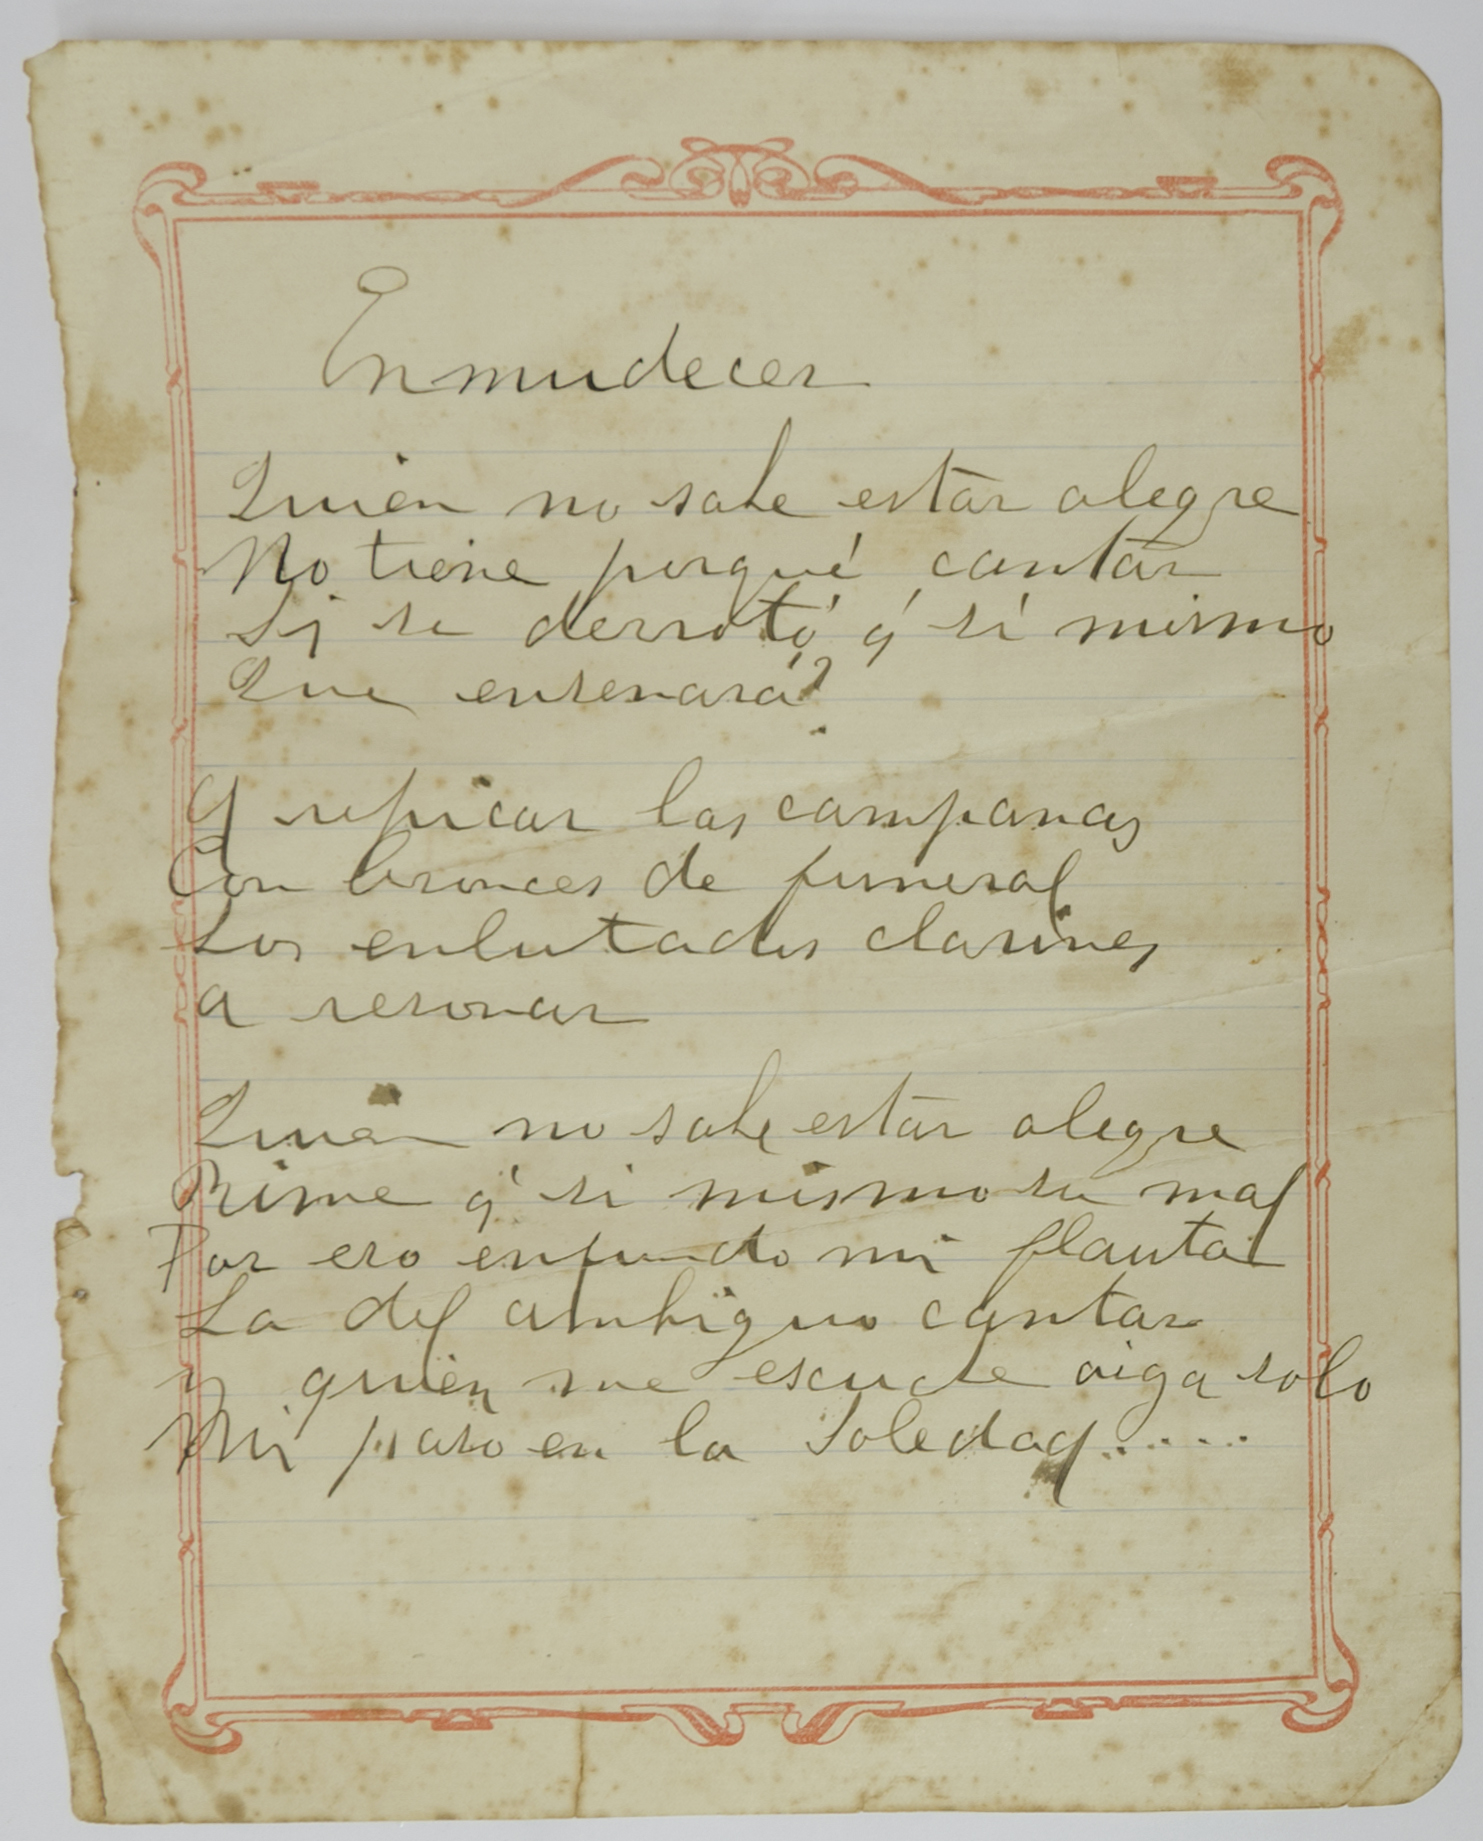 Enmudecer
Quien no sabe estar alegre
No tiene porqué cantar
Si se derrotó á sí mismo
Que ensenará?
Y repicar las campanas
Con bronces de funeral
Los enlutados clarines
a resonar
Quien no sabe estar alegre
Rime á si mismo su mal
Por eso enfundo mi flauta
La del ambiguo cantar
y quien me escuche oiga solo
Mi paso en la Soledad.....